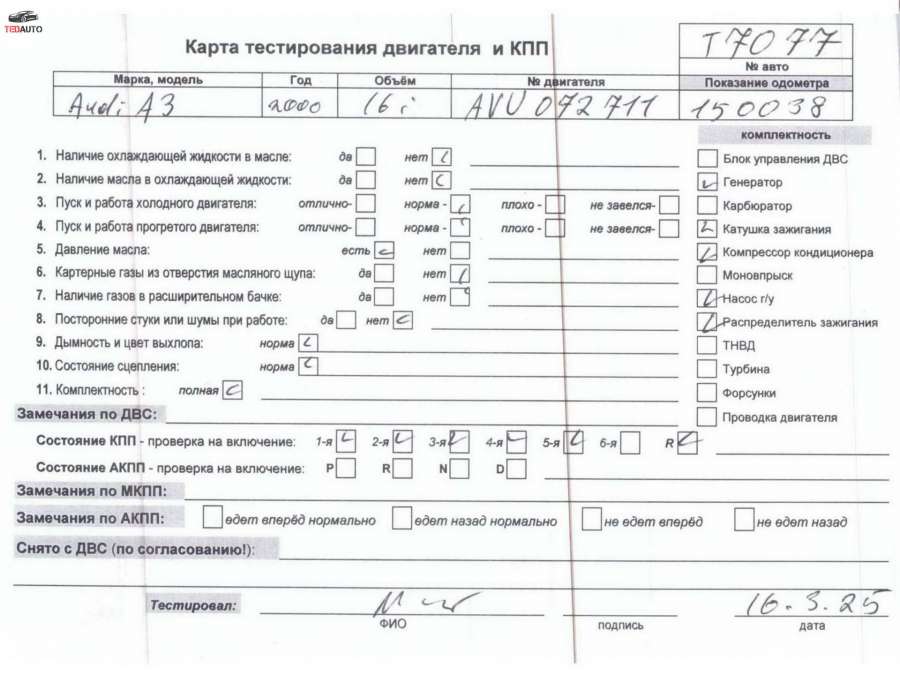 TEDAUTO
Карта тестирования двигателя и КПП
T7077
№ авто
Марка, модель Год Объём № двигателя Показание одометра
Audi A3 2000 16 i AVU 072 711 150038
комплектность
1. Наличие охлаждающей жидкости в масле: да нет
Блок управления ДВС
2. Наличие масла в охлаждающей жидкости: да нет
Генератор
3. Пуск и работа холодного двигателя: отлично- норма - плохо - не завелся-
Карбюратор
4. Пуск и работа прогретого двигателя: отлично- норма - плохо - не завелся-
Катушка зажигания
5. Давление масла: есть нет
Компрессор кондиционера
6. Картерные газы из отверстия масляного щупа: да нет
Моновпрыск
7. Наличие газов в расширительном бачке: да нет
Насос г/у
8. Посторонние стуки или шумы при работе: да нет
Распределитель зажигания
9. Дымность и цвет выхлопа: норма
ТНВД
10. Состояние сцепления: норма
Турбина
11. Комплектность : полная
Форсунки
Замечания по ДВС:
Проводка двигателя
Состояние КПП - проверка на включение: 1-я 2-я 3-я 4-я 5-я 6-я R
Состояние АКПП - проверка на включение: P R N D
Замечания по МКПП:
Замечания по АКПП: едет вперёд нормально едет назад нормально не едет вперёд не едет назад
Снято с ДВС (по согласованию!):
Тестировал: 16.3.25
ФИО подпись дата